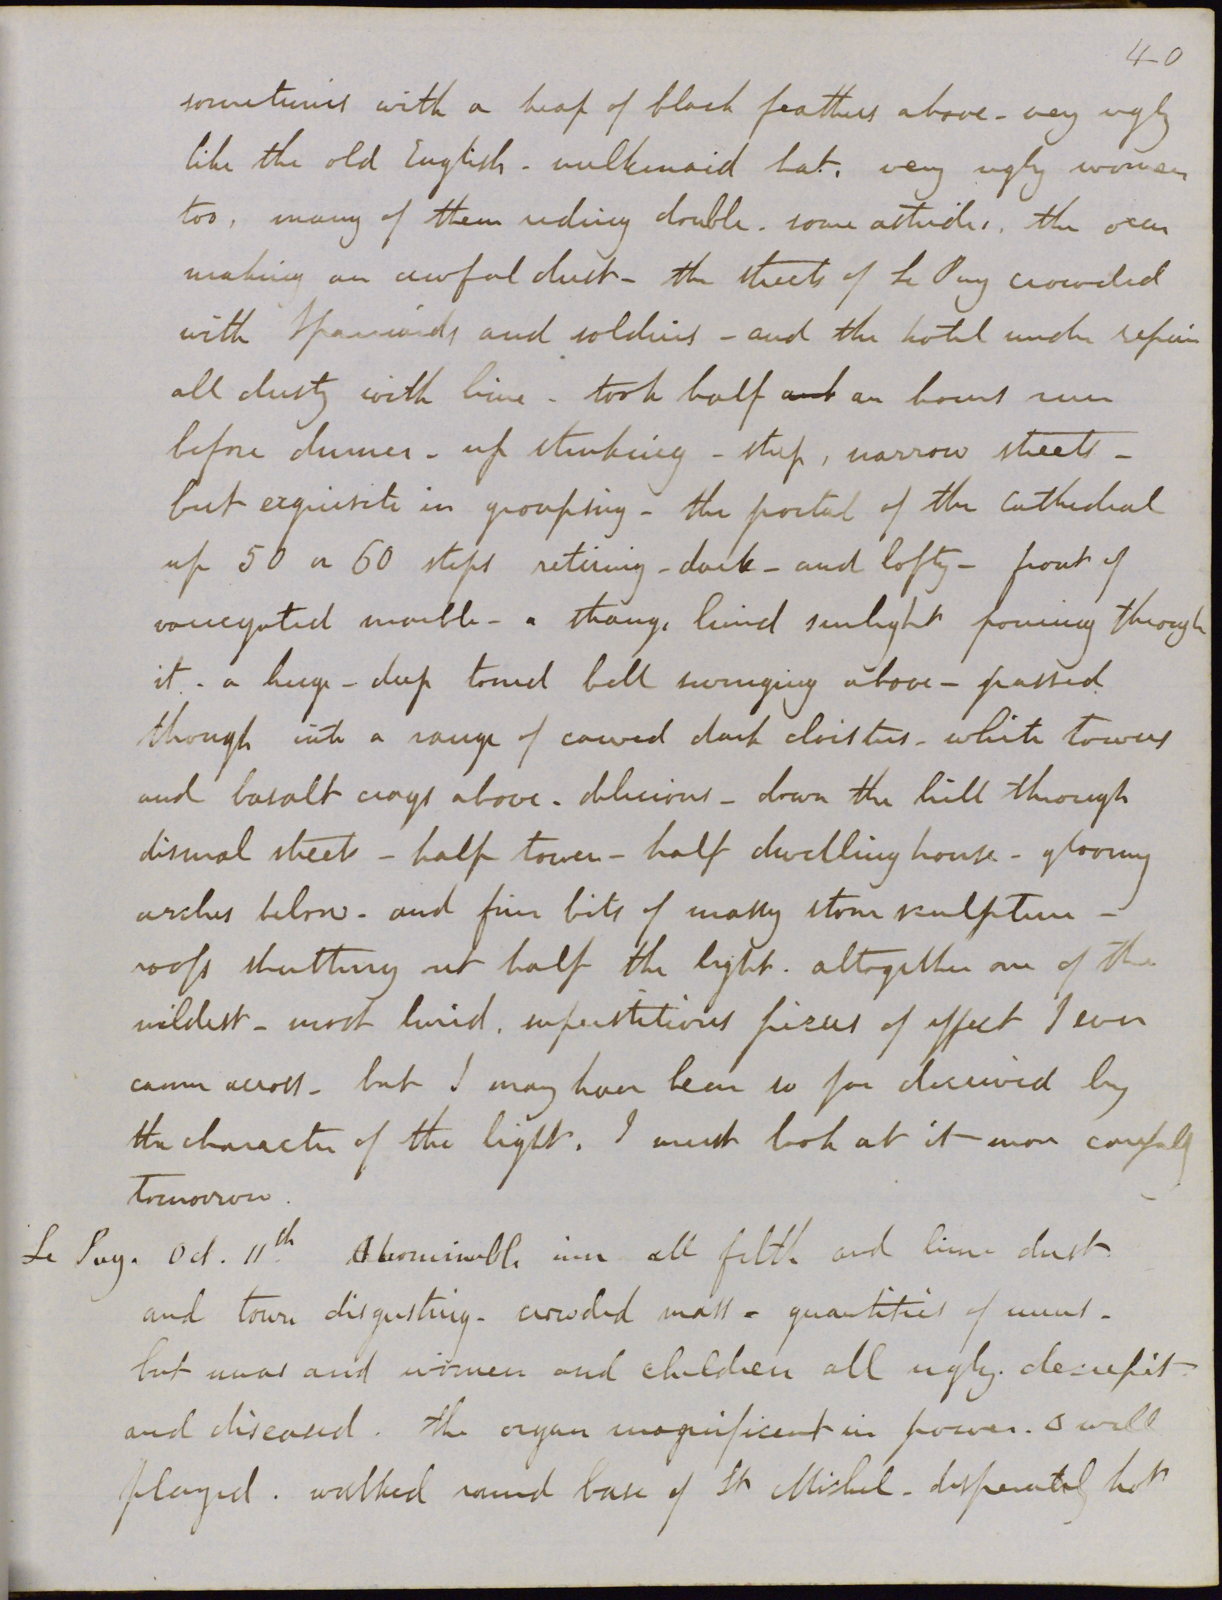 40
sometimes with a heap of black feathers above - very ugly
like the old English - milkmaid hat. very ugly women
too, many of them riding double. some astride, the oxen
making an awful dust - the streets of Le Puy crowded
with Spaniards and soldiers - and the hotel under repair
all dusty with lime - took half and an hours run
before dinner - up stinking - steep, narrow streets -
but exquisite in grouping - the portal of the cathedral
up 50 or 60 steps retiring - dark - and lofty - front of
variegated marble - a strange lurid sunlight pouring through
it - a huge - deep toned bell swinging above - passed
through into a range of carved dark cloisters - white towers
and basalt crags above - delicious - down the hill through
dismal streets - half tower - half dwelling house - gloomy
arches below - and fine bits of massy stone sculpture -
roofs shutting out half the light. altogether one of the
wildest - most lurid, superstitious pieces of effect I ever
came across - but I may have been so far deceived by
the character of the light. I must look at it more carefully
tomorrow.
Le Puy. Oct. 11th Abominable inn all filth and lime dust
and town disgusting - crowded mass - quantities of nuns -
but nuns and women and children all ugly. decrepit
and diseased. The organ magnificent in power. & well
played. walked round base of St Michel - desperately hot